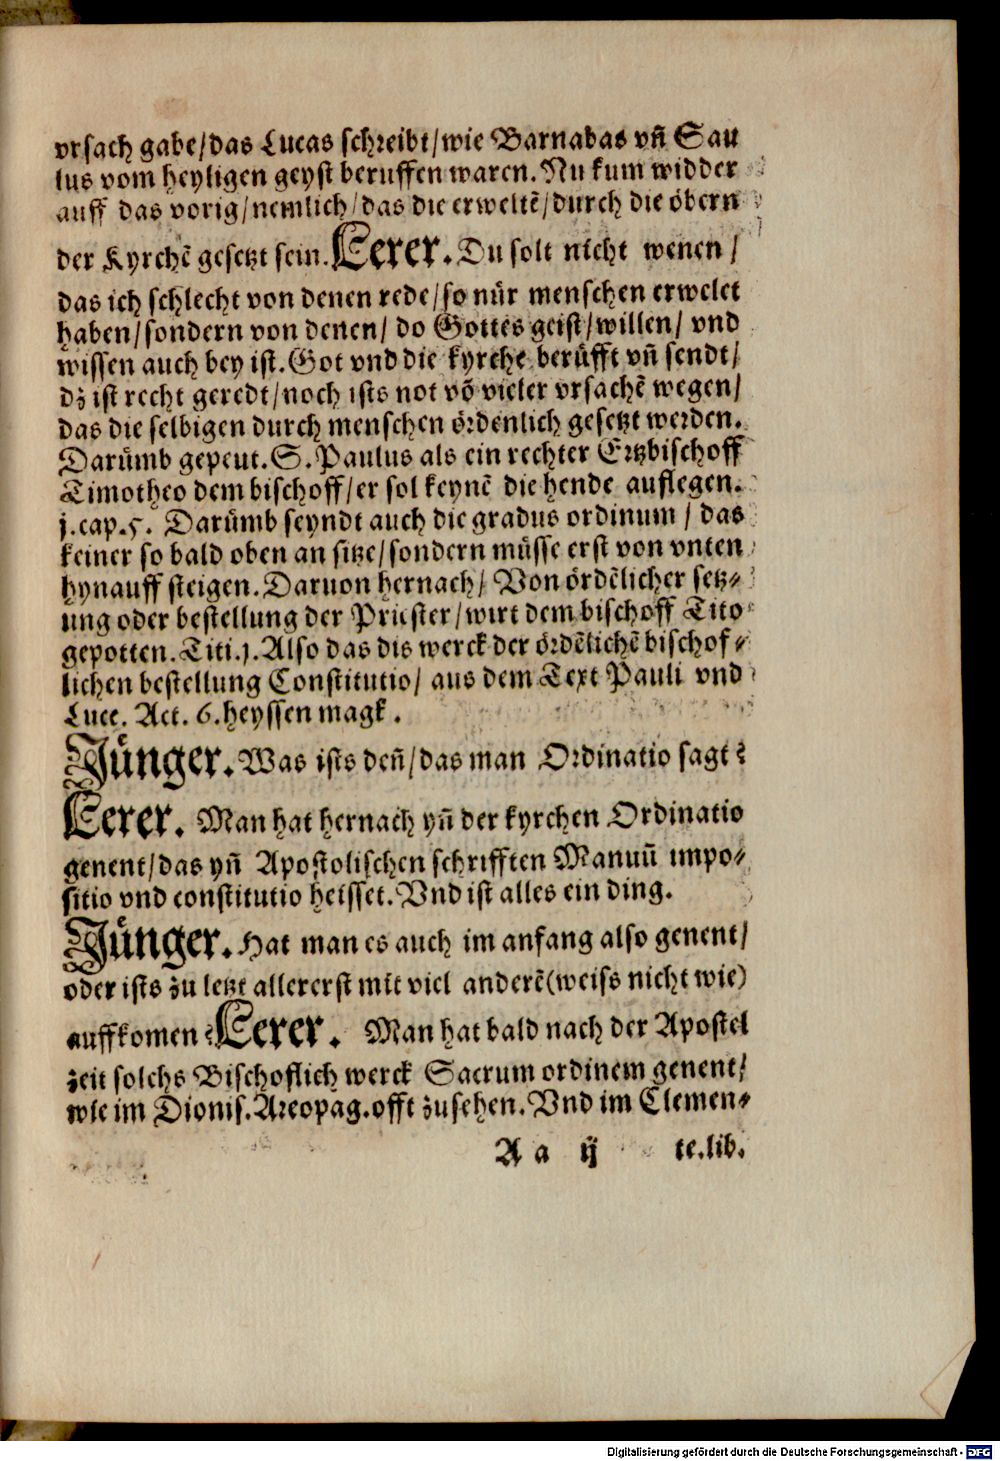 vrsach gabe/das Lucas schreibt/wie Barnabas vñ Sau
lus vom heyligen geyst beruffen waren. Nu kum widder
auff das vorig/nemlich/das die erweltẽ/durch die öbern
der Kyrchẽ gesetzt sein. Lerer. Du solt nicht wenen/
das ich schlecht von denen rede/so nůr menschen erwelet
haben/sondern von denen/do Gottes geist/willen/vnd
wissen auch bey ist. Got vnd die kyrche berůfft vñ sendt/
dz ist recht geredt/noch ists not võ vieler vrsachẽ wegen/
das die selbigen durch menschen ördenlich gesetzt werden.
Darůmb gepeut. S. Paulus als ein rechter Ertzbischoff
Timotheo dem bischoff/er sol keynẽ die hende auflegen.
j.cap.5. Darůmb seyndt auch die gradus ordinum/das
keiner so bald oben an sitze/sondern můsse erst von vnten
hynauff steigen. Daruon hernach/Von ördẽlicher setz⸗
ung oder bestellung der Priester/wirt dem bischoff Tito
gepotten. Titi.j. Also das dis werck der ördẽlichẽ bischof⸗
lichen bestellung Constitutio/aus dem Text Pauli vnd
Luce. Act. 6. heyssen magk.
Jůnger. Was ists deñ/das man Ordinatio sagt?
Lerer. Man hat hernach yñ der kyrchen Ordinatio
genent/das yñ Apostolischen schrifften Manuũ impo⸗
sitio vnd constitutio heisset. Vnd ist alles ein ding.
Jůnger. Hat man es auch im anfang also genent/
oder ists zu letzt allererst mit viel anderẽ (weiss nicht wie)
auffkomen? Lerer. Man hat bald nach der Apostel
zeit solchs Bischoflich werck Sacrum ordinem genent/
wie im Dionis. Areopag. offt zusehen. Vnd im Clemen⸗
A a ij te.lib.
Digitalisierung gefördert durch die Deutsche Forschungsgemeinschaft - DFG